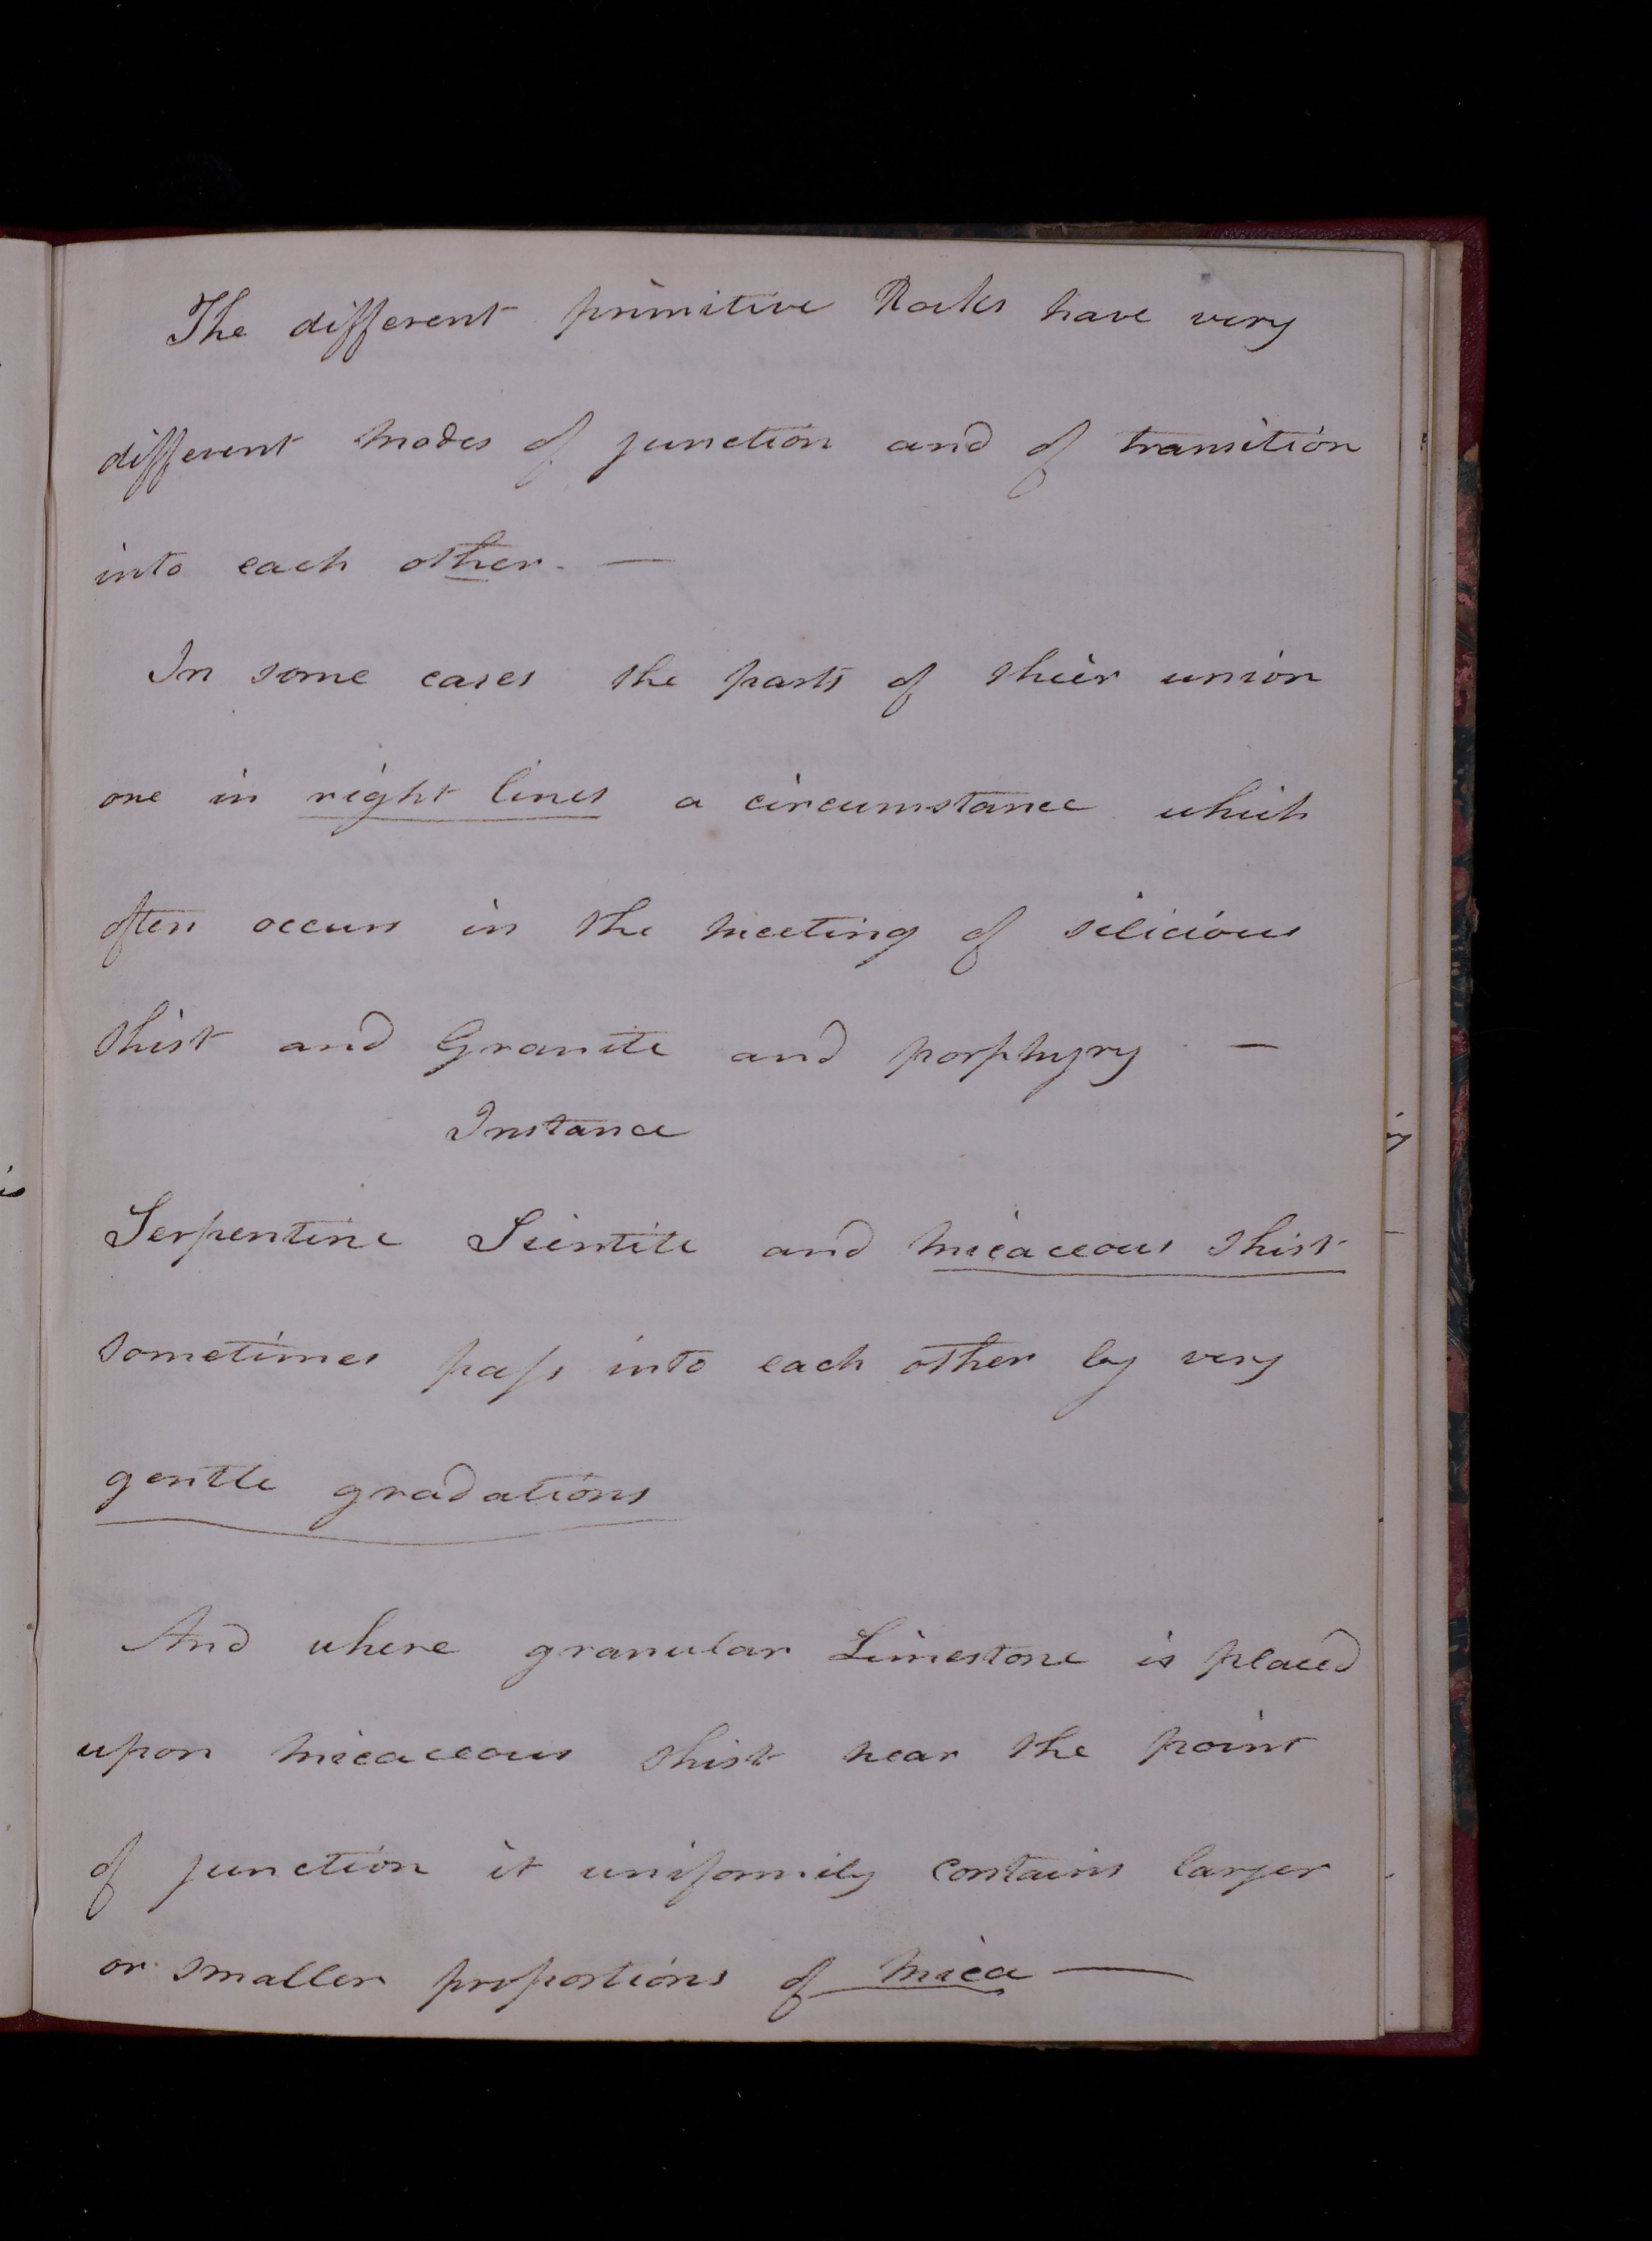 The different primitive Rocks have very
different modes of junction and of transition
into each other. —
In some cases the parts of their union
one in right lines a circumstance which
often occurs in the meeting of silicious
Shist and Granite and porphyry —
Instance
Serpentine Sientite and micaceous Shist
sometimes pass into each other by very
gentle gradations
And where granular Limestone is placed
upon micaceous Shist near the point
of junction it uniformily contains larger
or smaller proportions of mica —